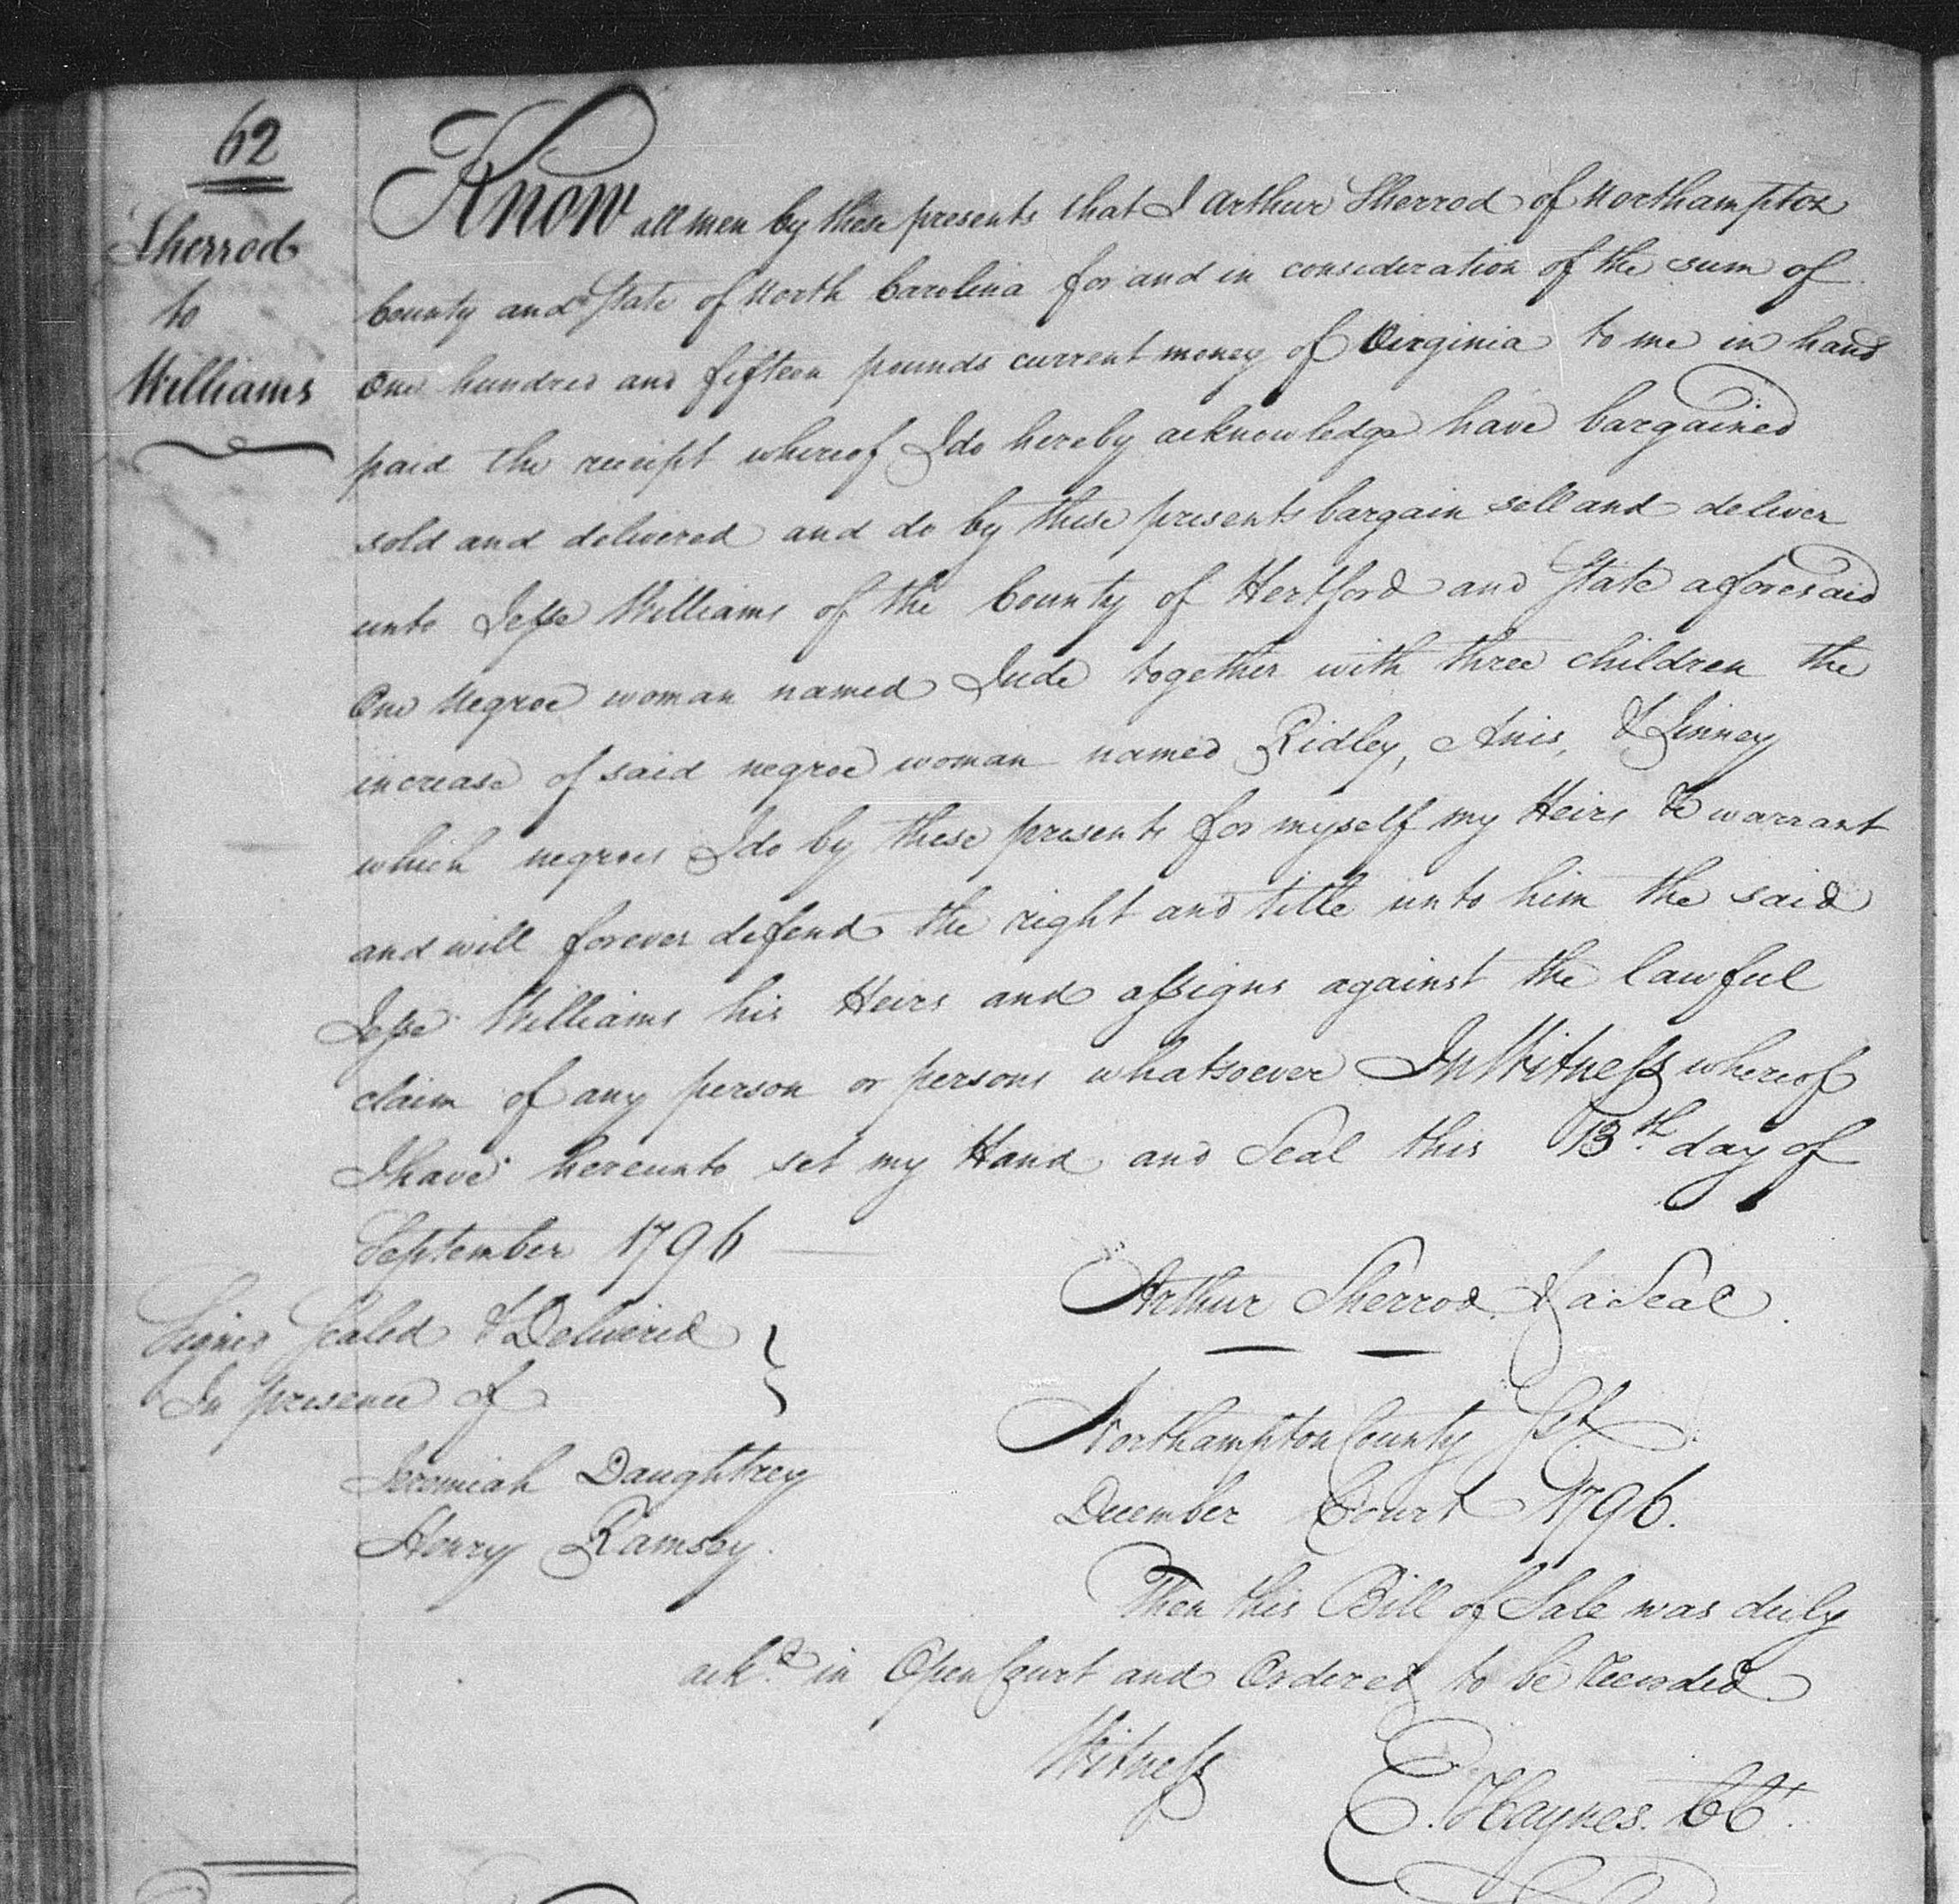 62
Sherrod
to
Williams
Know all men by these presents that I Arthur Sherrod of Northampton
County and State of North Carolina for and in consideration of the sum of
One hundred and fifteen pounds current money of Virginia to me in hand
paid the receipt whereof I do hereby acknowledge have bargained
sold and delivered and do by these presents bargain sell and deliver
unto Jesse Williams of the County of Hertford and State aforesaid
One Negroe woman named Jude together with three children the
increase of said negroe woman named Ridley, Anis, & Jinney
which negroes I do by these presents for myself my Heirs &c warrant
and will forever defend the right and title unto him the said
Jesse Williams his Heirs and assigns against the lawful
claim of any person or persons whatsoever In Witness whereof
I have hereunto set my Hand and Seal this 13th day of
September 1796
Arthur Sherrod & a Seal
Signed Sealed & Delivered
In presence of
Jeremiah Daughtrey
Henry Ramsey.
Northampton County Sct.
December Court 1796.
Then this Bill of Sale was duly
ackd. in Open Court and Ordered to be recorded
Witness
E. Haynes. CCt.